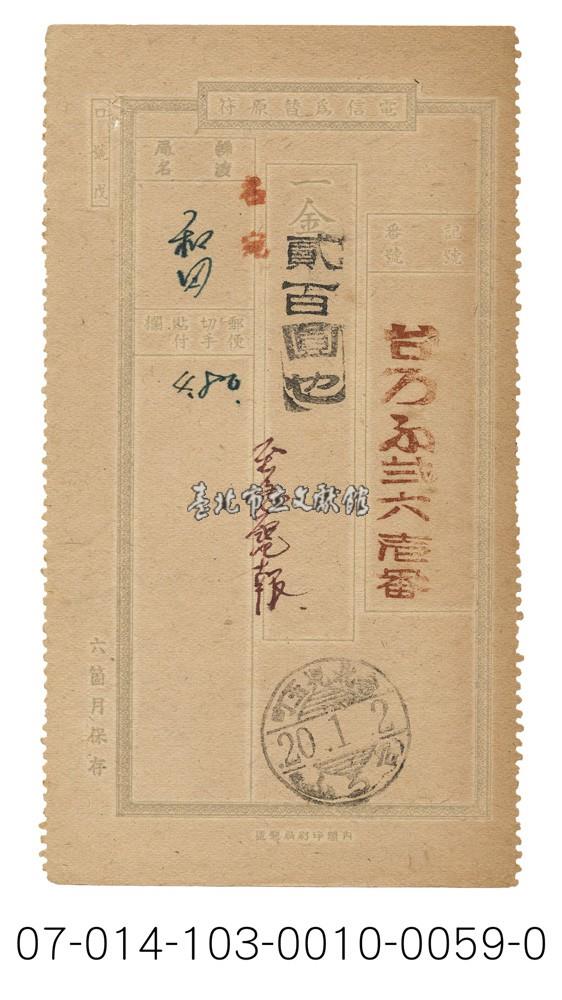 電信為替原符
口號戊
記號
番號
台乃ふ弐六壱番
一金
貳百圓也
名宛
至急電報
振渡
局名
和田
郵便
切手
貼付
欄
4.80.
臺北市立文獻館
六箇月保存
臺北児玉町
20.1.2
內閣印刷局製造
07-014-103-0010-0059-0